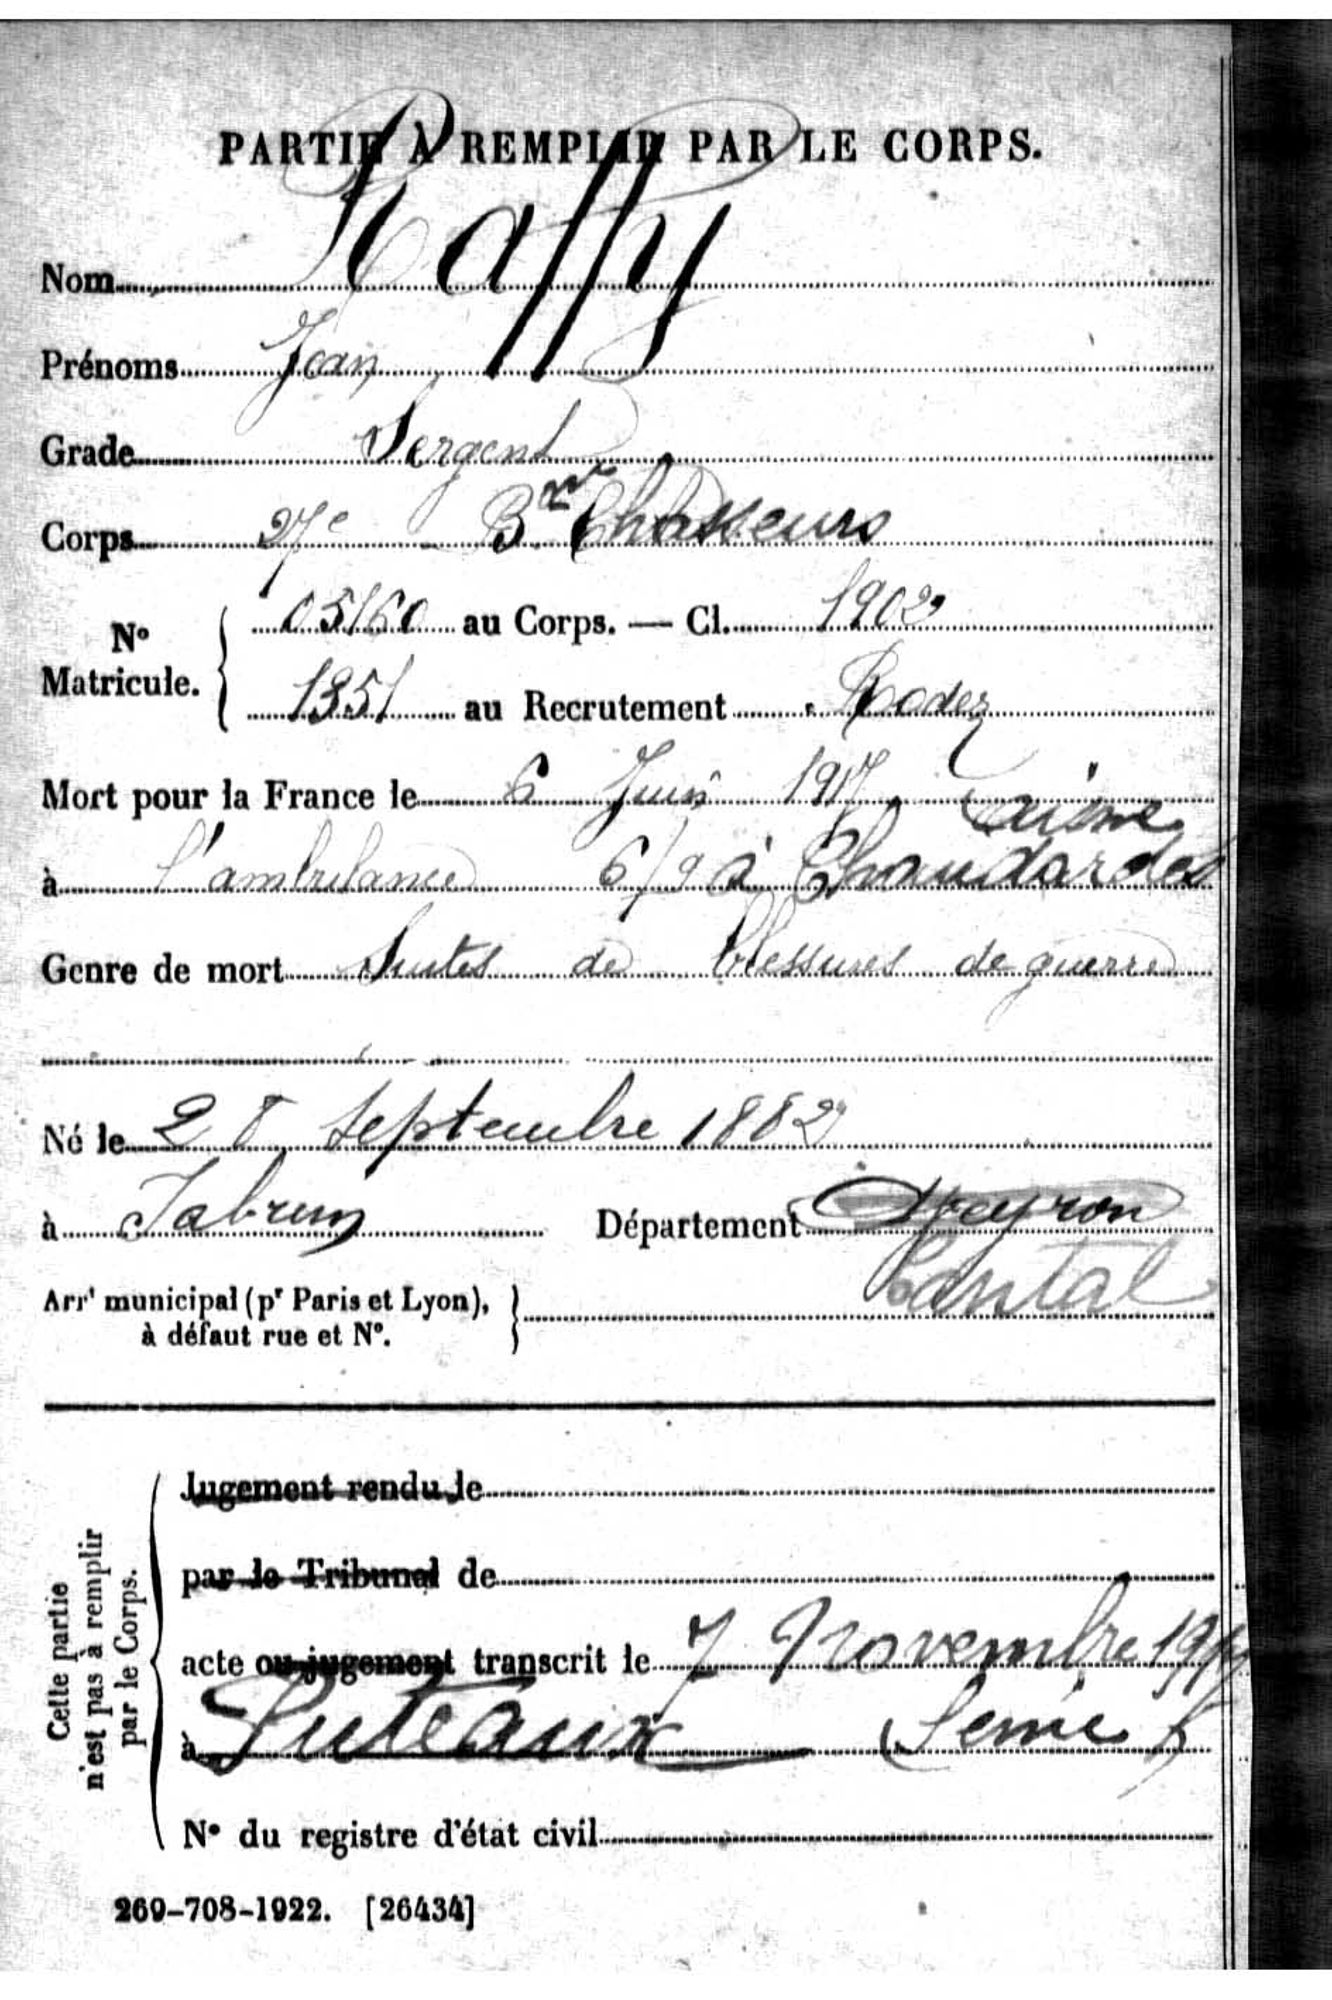 PARTIE À REMPLIR PAR LE CORPS.
Nom Raffy
Prénoms Jean
Grade Sergent
Corps 27e Bon Chasseurs
No Matricule. { 05160 au Corps. — Cl. 1902
1351 au Recrutement Rodez
Mort pour la France le 6 Juin 1917
Aisne
à l'ambulance 6/9 à Chaudardes
Genre de mort Suites de blessures de guerre
Né le 28 Septembre 1882
à Jabrun Département Aveyron
Cantal
Arrt municipal (pr Paris et Lyon), }
à défaut rue et No.
Cette partie
n'est pas à remplir
par le Corps.
Jugement rendu le
par le Tribunal de
acte ou jugement transcrit le 7 Novembre 1917
à Puteaux Seine
No du registre d'état civil
269-708-1922. [26434]